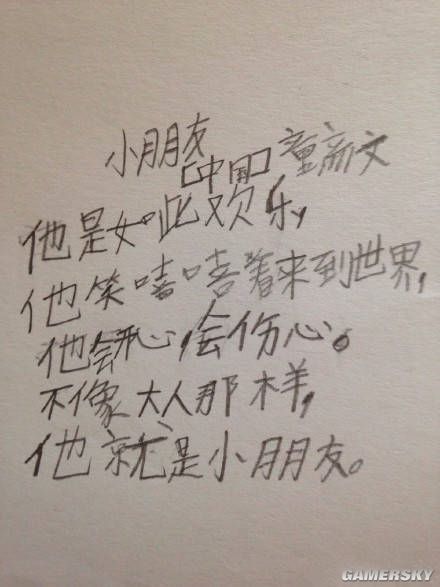 小朋友
[中国]童新文
他是如此欢乐,
他笑嘻嘻着来到世界,
他会开心,会伤心。
不像大人那样,
他就是小朋友。
GAMERSKY